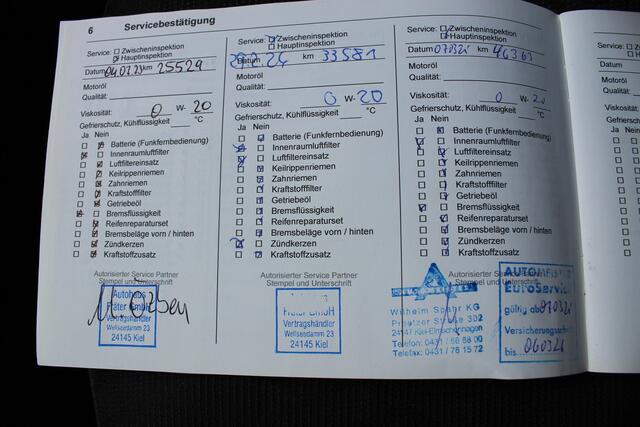 6 Servicebestätigung
Service: Zwischeninspektion
Hauptinspektion
Datum 04.07.23 km 25529
Motoröl
Qualität:
Viskosität: 0 W- 20
Gefrierschutz, Kühlflüssigkeit °C
Ja Nein
Batterie (Funkfernbedienung)
Innenraumluftfilter
Luftfiltereinsatz
Keilrippenriemen
Zahnriemen
Kraftstofffilter
Getriebeöl
Bremsflüssigkeit
Reifenreparaturset
Bremsbeläge vorn / hinten
Zündkerzen
Kraftstoffzusatz
Autorisierter Service Partner
Stempel und Unterschrift
Autohaus
Präter GmbH
Vertragshändler
Wellseedamm 23
24145 Kiel
Service: Zwischeninspektion
Hauptinspektion
Datum 24 km 33581
Motoröl
Qualität:
Viskosität: 0 W- 20
Gefrierschutz, Kühlflüssigkeit °C
Ja Nein
Batterie (Funkfernbedienung)
Innenraumluftfilter
Luftfiltereinsatz
Keilrippenriemen
Zahnriemen
Kraftstofffilter
Getriebeöl
Bremsflüssigkeit
Reifenreparaturset
Bremsbeläge vorn / hinten
Zündkerzen
Kraftstoffzusatz
Autorisierter Service Partner
Stempel und Unterschrift
GmbH
Vertragshändler
Wellseedamm 23
24145 Kiel
Service: Zwischeninspektion
Hauptinspektion
Datum km 46363
Motoröl
Qualität:
Viskosität: 0 W- 20
Gefrierschutz, Kühlflüssigkeit °C
Ja Nein
Batterie (Funkfernbedienung)
Innenraumluftfilter
Luftfiltereinsatz
Keilrippenriemen
Zahnriemen
Kraftstofffilter
Getriebeöl
Bremsflüssigkeit
Reifenreparaturset
Bremsbeläge vorn / hinten
Zündkerzen
Kraftstoffzusatz
Autorisierter Service Partner
Stempel und Unterschrift
Wilhelm Spahr KG
Preetzer Strasse 302
24147 Kiel-Elmschenhagen
Telefon: 0431 / 66 88 00
Telefax: 0431 / 78 15 72
EuroService
gültig ab
bis